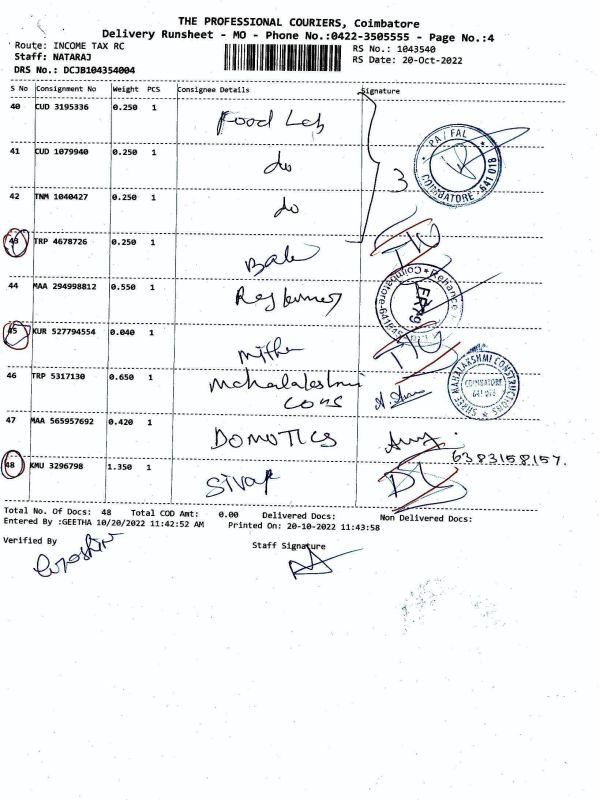 THE PROFESSIONAL COURIERS, Coimbatore
Delivery Runsheet - MO - Phone No.:0422-3505555 - Page No.:4
Route: INCOME TAX RC
RS No.: 1043540
Staff: NATARAJ
RS Date: 20-Oct-2022
DRS No.: DCJB104354004
S No Consignment No Weight PCS Consignee Details Signature
40 CUD 3195336 0.250 1 Food Lab
41 CUD 1079940 0.250 1 do
3 PA / FAL COIMBATORE 641 018
42 TNM 1040427 0.250 1 do
43 TRP 4678726 0.250 1
44 MAA 294998812 0.550 1 Rajkumar
45 KUR 527794554 0.040 1
46 TRP 5317130 0.650 1 Mahalaleshmi
cons
SHREE MAHALAKSHMI CONSTRUCTIONS COIMBATORE 641 018
47 MAA 565957692 0.420 1 DOMOTICS
6383158157.
48 KMU 3296798 1.350 1
Total No. Of Docs: 48 Total COD Amt: 0.00 Delivered Docs: Non Delivered Docs:
Entered By :GEETHA 10/20/2022 11:42:52 AM Printed On: 20-10-2022 11:43:58
Verified By
Staff Signature